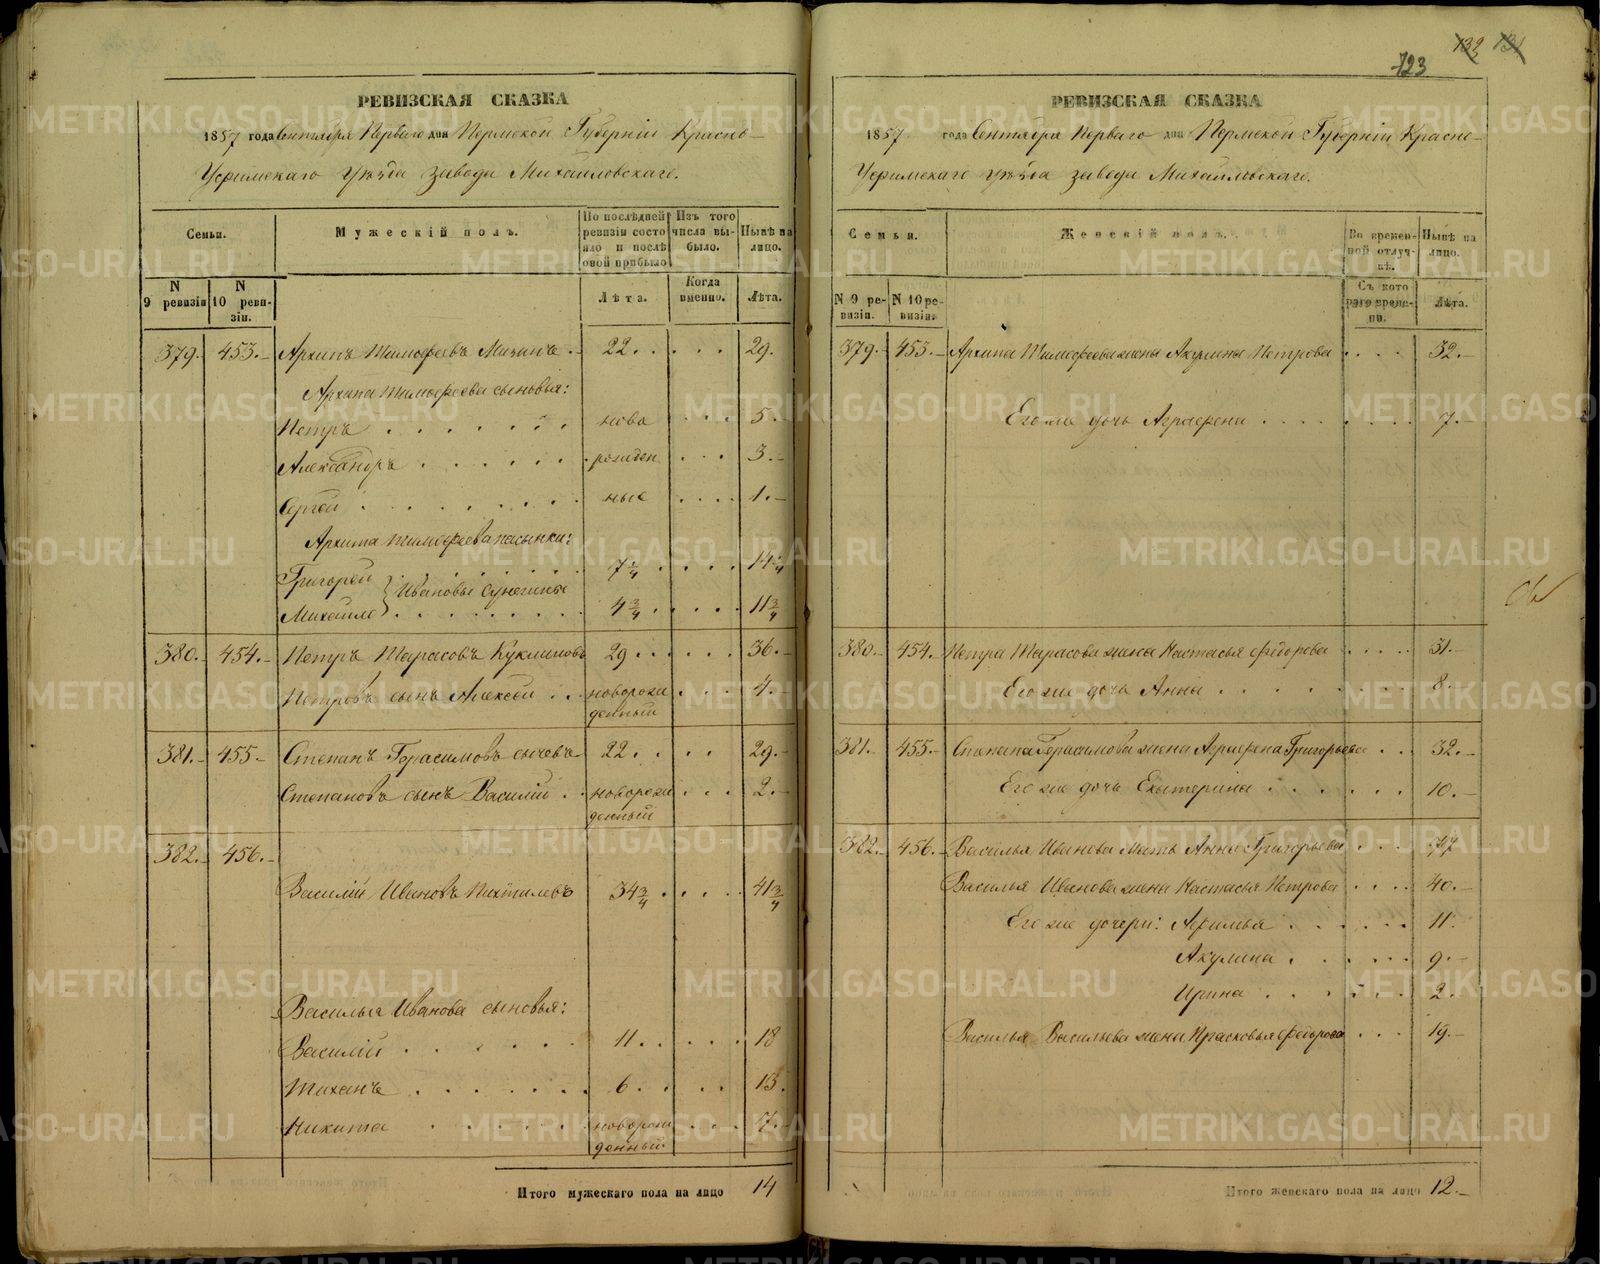 РЕВИЗСКАЯ СКАЗКА
1857 года Сентября Перваго дня Пермской Губерніи Красно-
Уфимскаго Уѣзда завода Михайловскаго.
Семьи.
Мужескій полъ.
По послѣдней ревизіи состояло и послѣ оной прибыло
Изъ того числа выбыло.
Нынѣ на лицо.
N 9 ревизіи
N 10 ревизіи.
Лѣта.
Когда именно.
Лѣта.
379. 453. Архипъ Тимофеевъ 22. 29.
Архипа Тимофеева сыновья:
Петръ ново 5.
Александръ рожден 3.
Сергей ные 1.
Архипа Тимофеева пасынки:
Григорей 7 1/4 14 1/4
Ивановы
Михайло 4 3/4 11 3/4
380. 454. Петръ Тарасовъ Куклиновъ 29 36.
Петровъ сынъ Алексей новорожденный 4.
381. 455. Степанъ Герасимовъ Сычевъ 22. 29.
Степановъ сынъ Василій новорожденный 2.
382. 456.
Василій Ивановъ 34 3/4 41 3/4
Василья Иванова сыновья:
Василій 11. 18
6. 13.
Никита новорожденный 7.
Итого мужескаго пола на лицо 14
123 132 131
РЕВИЗСКАЯ СКАЗКА
1857 года Сентября Перваго дня Пермской Губерніи Красно-
Уфимскаго Уѣзда завода Михайловскаго.
Семьи.
Женскій полъ.
Во временной отлучкѣ.
Нынѣ на лицо.
N 9 ревизіи.
N 10 ревизіи.
Съ котораго времени.
Лѣта.
379. 453. Архипа Тимофеева жена Акулина Петрова 32.
Его же дочь Аграфена 7.
380. 454. Петра Тарасова жена Настасья Федорова 31.
Его же дочь Анна 8.
381. 455. Степана Герасимова жена Аграфена Григорьева 32.
Его же дочь Екатерина 10.
382. 456. Василья Иванова мать Анна Григорьева 77
Василья Иванова жена Настасья Петрова 40.
Его же дочери: Афимья 11.
Акулина 9.
Ирина 2.
Василья Васильева жена Прасковья Федорова 19.
Итого женскаго пола на лицо 12.
METRIKI.GASO-URAL.RU